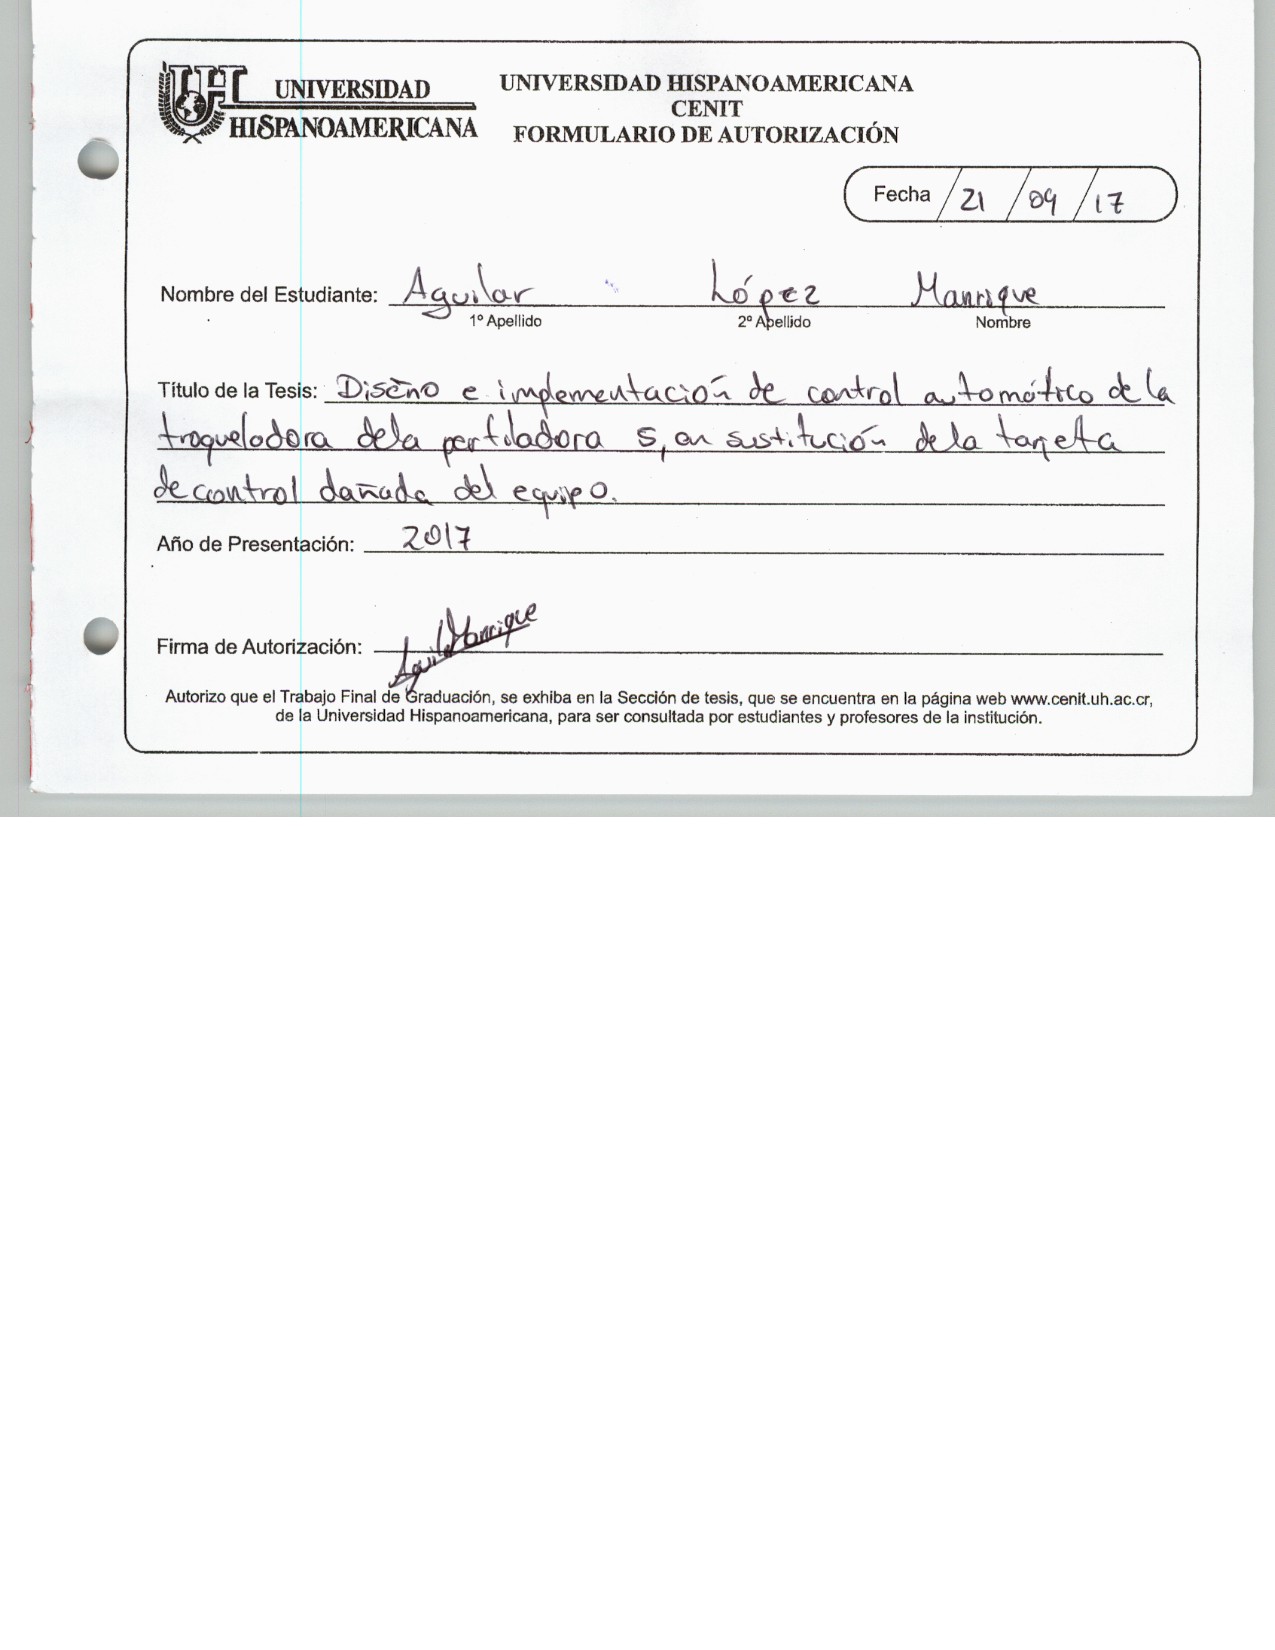 UNIVERSIDAD
HISPANOAMERICANA
UNIVERSIDAD HISPANOAMERICANA
CENIT
FORMULARIO DE AUTORIZACIÓN
Fecha / 21 / 09 / 17
Nombre del Estudiante: Aguilar López Manrique
1º Apellido 2º Apellido Nombre
Título de la Tesis: Diseño e implementación de control automático de la
troqueladora de la perfiladora 5, en sustitución de la tarjeta
de control dañada del equipo.
Año de Presentación: 2017
Firma de Autorización: Aguilar Manrique
Autorizo que el Trabajo Final de Graduación, se exhiba en la Sección de tesis, que se encuentra en la página web www.cenit.uh.ac.cr,
de la Universidad Hispanoamericana, para ser consultada por estudiantes y profesores de la institución.